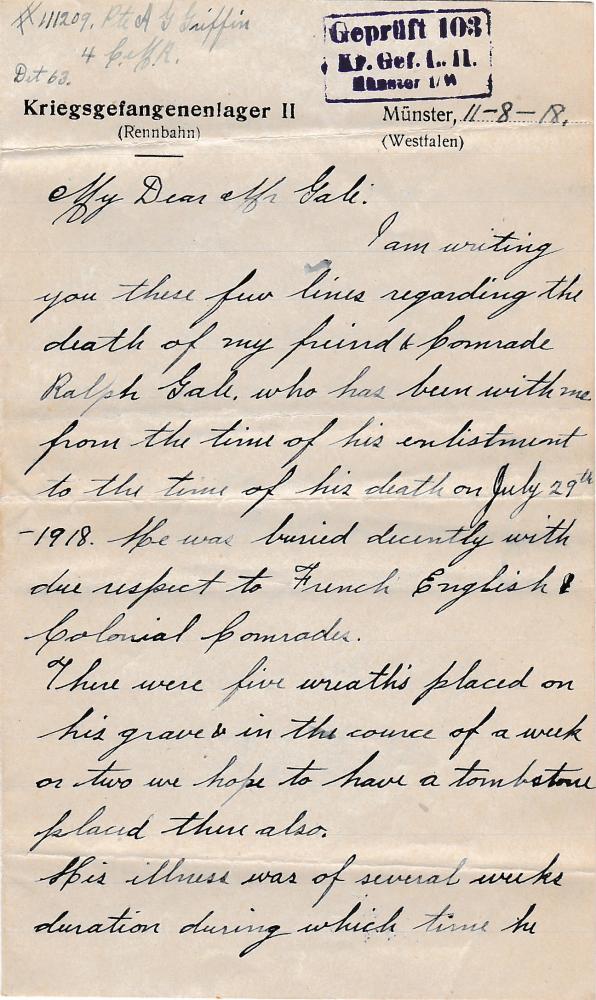 # 111209. Pte A G Griffin
4 C.M.R.
Det 63.
Geprüft 103
Kr. Gef. L. II.
Münster i/W
Kriegsgefangenenlager II
(Rennbahn)
Münster, 11-8-18.
(Westfalen)
My Dear Mr Gale.
I am writing
you these few lines regarding the
death of my freind & Comrade
Ralph Gale. who has been with me
from the time of his enlistment
to the time of his death on July 29th
-1918. He was buried decently with
due respect to French English &
Colonial Comrades.
There were five wreath's placed on
his grave & in the cource of a week
or two we hope to have a tombstone
placed there also.
His illness was of several weeks
duration during which time he